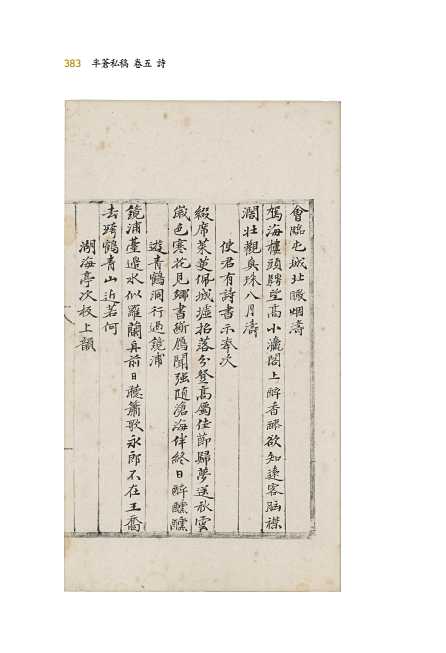 383 半蒼私稿 卷五 詩
會臨屯城北瞰烟濤
駕海樓頭騁望高小瀛閣上醉香醪欲知遠客胸襟
濶壯觀奥殊八月濤
使君有詩書示奉次
綴席茱萸佩城墟招落分登高屬佳節歸夢送秋雲
歲色寒花見鄉書斷鴈聞强隨滄海伴終日醉醺醺
遊青鶴洞行過鏡浦
鏡浦臺邊水似羅蘭舟前日聽簫歌永郎不在王喬
去跨鶴青山近若何
湖海亭次板上韻